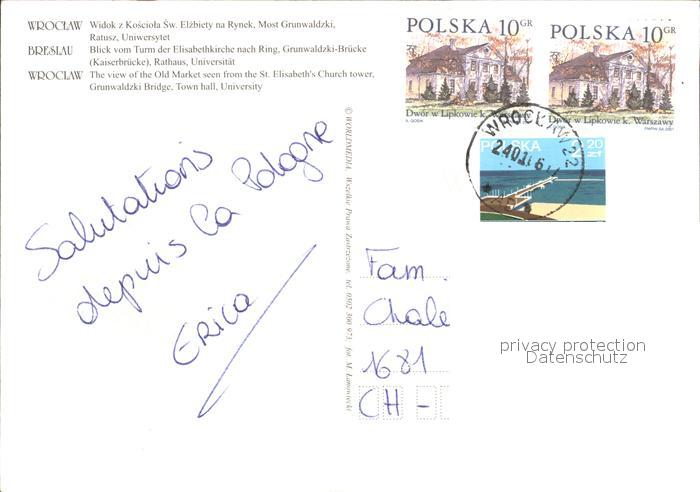 WROCŁAW Widok z Kościoła Św. Elżbiety na Rynek, Most Grunwaldzki,
Ratusz, Uniwersytet
BRESLAU Blick vom Turm der Elisabethkirche nach Ring, Grunwaldzki-Brücke
(Kaiserbrücke), Rathaus, Universität
WROCLAW The view of the Old Market seen from the St. Elisabeth's Church tower,
Grunwaldzki Bridge, Town hall, University
POLSKA 10GR
Dwór w Lipkowie k. Warszawy
POLSKA 10GR
Dwór w Lipkowie k. Warszawy
WROCŁAW 22
POLSKA 2,20
ZŁ
© WORLDMEDIA, Wszelkie Prawa Zastrzeżone, tel. 0602 300 973, fot. M.
Salutations
depuis la Pologne
Erica
Fam.
Chale
1681
CH -
privacy protection
Datenschutz